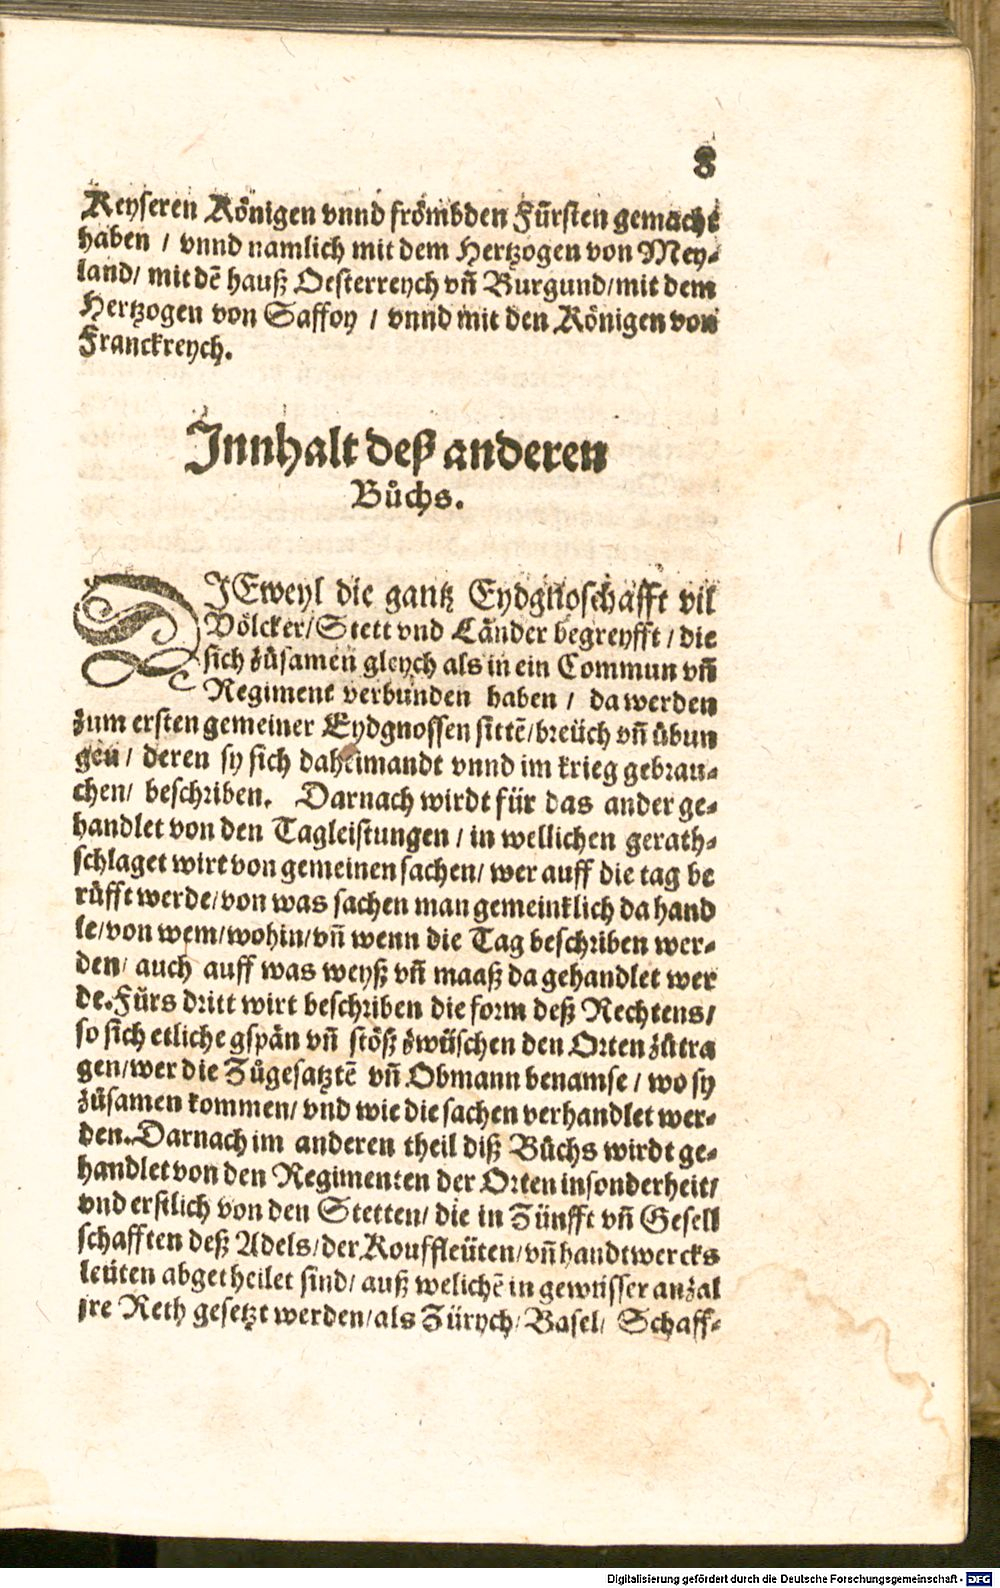 8
Keyseren Königen vnnd frömbden Fürsten gemacht
haben / vnnd namlich mit dem Hertzogen von Mey⸗
land/ mit dẽ hauß Oesterreych vñ Burgund/mit dem
Hertzogen von Saffoy / vnnd mit den Königen von
Franckreych.
Jnnhalt deß anderen
Bůchs.
DJEweyl die gantz Eydgnoschafft vil
Völcker/Stett vnd Länder begreyfft / die
sich zůsamen gleych als in ein Commun vñ
Regiment verbunden haben / da werden
zum ersten gemeiner Eydgnossen sittẽ/breüch vñ übun
gen/ deren sy sich daheimandt vnnd im krieg gebrau⸗
chen/ beschriben. Darnach wirdt für das ander ge⸗
handlet von den Tagleistungen / in wellichen gerath⸗
schlaget wirt von gemeinen sachen/ wer auff die tag be
rüfft werde/von was sachen man gemeinklich da hand
le/von wem/wohin/vñ wenn die Tag beschriben wer⸗
den/ auch auff was weyß vñ maaß da gehandlet wer
de.Fürs dritt wirt beschriben die form deß Rechtens/
so sich etliche gspän vñ stöß zwüschen den Orten zůtra
gen/wer die Zůgesatztẽ vñ Obmann benamse / wo sy
zůsamen kommen/ vnd wie die sachen verhandlet wer⸗
den.Darnach im anderen theil diß Bůchs wirdt ge⸗
handlet von den Regimenten der Orten insonderheit/
vnd erstlich von den Stetten/ die in Zünfft vñ Gesell
schafften deß Adels/der Kouffleüten/vñ handtwercks
leüten abgetheilet sind/ auß welichẽ in gewüsser anzal
jre Reth gesetzt werden/als Zürych/ Basel/ Schaff⸗
Digitalisierung gefördert durch die Deutsche Forschungsgemeinschaft - DFG